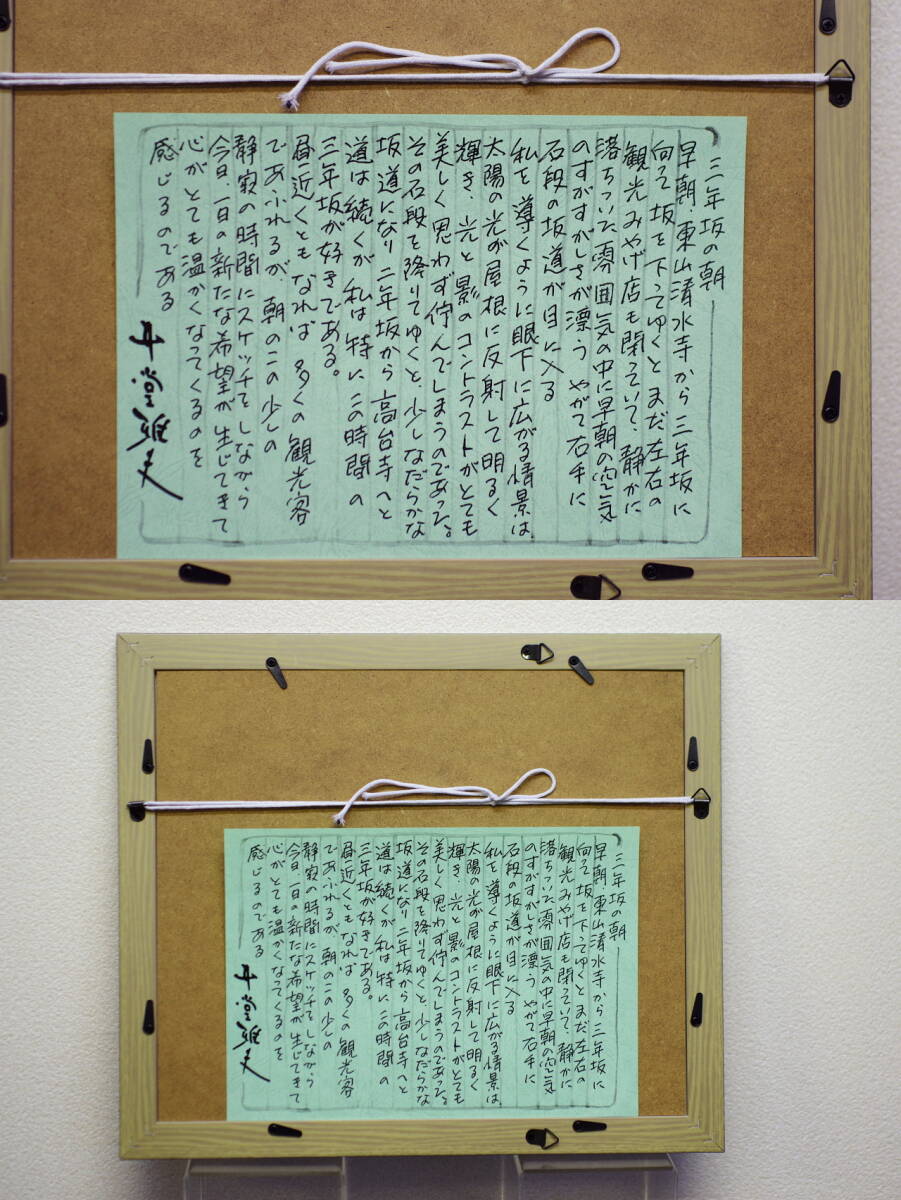 三年坂の朝
早朝、東山清水寺から三年坂に
向って坂を下ってゆくとまだ左右の
観光みやげ店も閉っていて、静かに
落ちついた雰囲気の中に早朝の空気
のすがすがしさが漂う やがて右手に
石段の坂道が目に入る
私を導くように眼下に広がる情景は、
太陽の光が屋根に反射して明るく
輝き、光と影のコントラストがとても
美しく思わず佇んでしまうのであった。
その石段を降りてゆくと、少しなだらかな
坂道になり 二年坂から高台寺へと
道は続くが私は特にこの時間の
三年坂が好きである。
昼近くともなれば多くの観光客
であふれるが、朝のこの少しの
静寂の時間にスケッチをしながら
今日、一日の新たな希望が生じてきて
心がとても温かくなってくるのを
感じるのである
丹堂雅夫
三年坂の朝
早朝、東山清水寺から三年坂に
向って坂を下ってゆくとまだ左右の
観光みやげ店も閉っていて、静かに
落ちついた雰囲気の中に早朝の空気
のすがすがしさが漂う やがて右手に
石段の坂道が目に入る
私を導くように眼下に広がる情景は、
太陽の光が屋根に反射して明るく
輝き、光と影のコントラストがとても
美しく思わず佇んでしまうのであった。
その石段を降りてゆくと、少しなだらかな
坂道になり 二年坂から高台寺へと
道は続くが私は特にこの時間の
三年坂が好きである。
昼近くともなれば多くの観光客
であふれるが、朝のこの少しの
静寂の時間にスケッチをしながら
今日、一日の新たな希望が生じてきて
心がとても温かくなってくるのを
感じるのである
丹堂雅夫